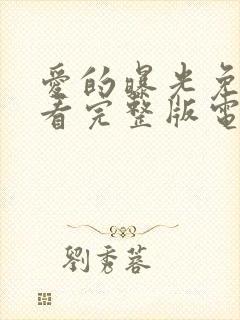 愛的曝光免
看完整版電
劉秀蓉